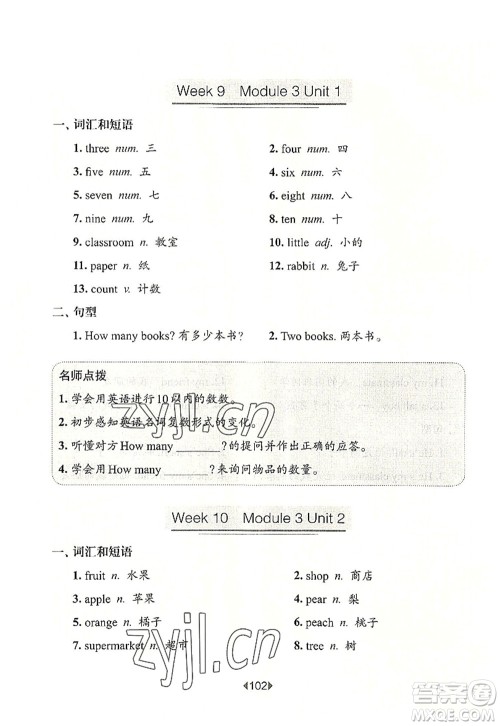 Week 9 Module 3 Unit 1
一、词汇和短语
1. three num. 三 2. four num. 四
3. five num. 五 4. six num. 六
5. seven num. 七 6. eight num. 八
7. nine num. 九 8. ten num. 十
9. classroom n. 教室 10. little adj. 小的
11. paper n. 纸 12. rabbit n. 兔子
13. count v. 计数
二、句型
1. How many books? 有多少本书? 2. Two books. 两本书。
名师点拨
1. 学会用英语进行10以内的数数。
2. 初步感知英语名词复数形式的变化。
3. 听懂对方How many ______?的提问并作出正确的应答。
4. 学会用How many ______?来询问物品的数量。
zyjl.cn
Week 10 Module 3 Unit 2
一、词汇和短语
1. fruit n. 水果 2. shop n. 商店
3. apple n. 苹果 4. pear n. 梨
5. orange n. 橘子 6. peach n. 桃子
7. supermarket n. 超市 8. tree n. 树
zyjl.cn
102
作业答案
MXQE.COM